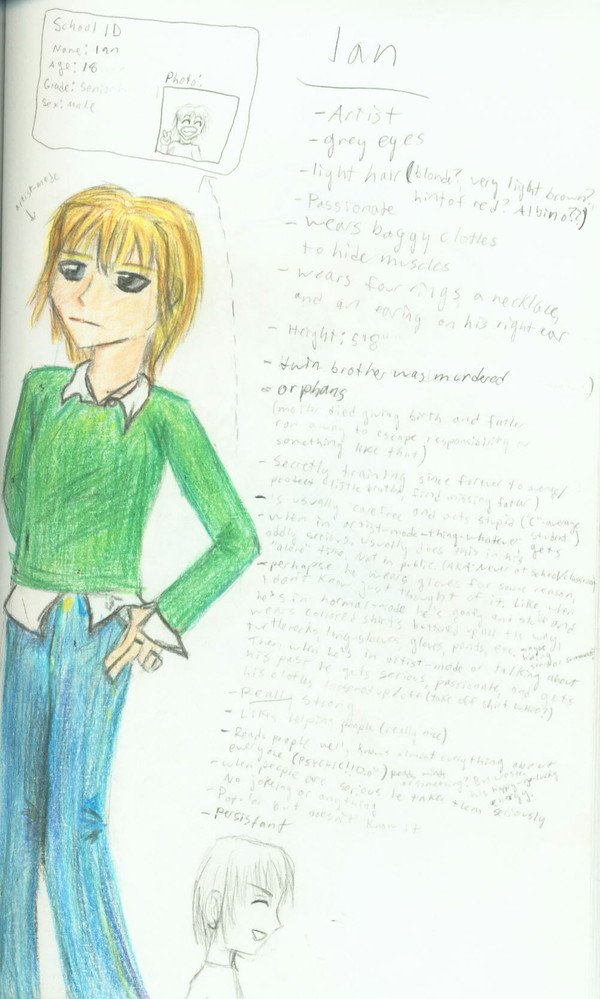 School ID
Name: Ian
Age: 18
Grade: Senior
Sex: Male
Photo:
Artist-mode
Ian
- Artist
- grey eyes
- light hair (blonde? very light brown?
hint of red? Albino??)
- Passionate
- wears baggy clothes
to hide muscles
- wears four rings, a necklace,
and an earing on his right ear
- Height: 5'8"
- twin brother was murdered
- orphans )
(mother died giving birth and father
ran away to escape responsibility or
something like that)
- Secretly training since forever to
protect little brother find missing father)
- is usually carefree and acts stupid ("C" average student)
- when in artist-mode-thing-whatever gets
oddly serious, usually does this in his
"alone" time, not in public. (AKA: Never at school
- perhapse he wears gloves for some reason,
I don't know just thought of it. Like, when
he's in normal-mode he's goofy and stuff and
wears collared shirts buttoned all the way,
turtlenecks, long-sleeves, gloves, pants, etc.
Then when he's in artist-mode or talking about
his past he gets serious, passionate, and gets
his cloths loosened up/off (take off shirt
- Really strong
- Likes helping people (really nice)
- Reads people well, knows almost everything about
everyone (PSYCHIC!!
- when people are serious he takes them seriously
No joking or anything
- Popular but doesn't know it
- persistant